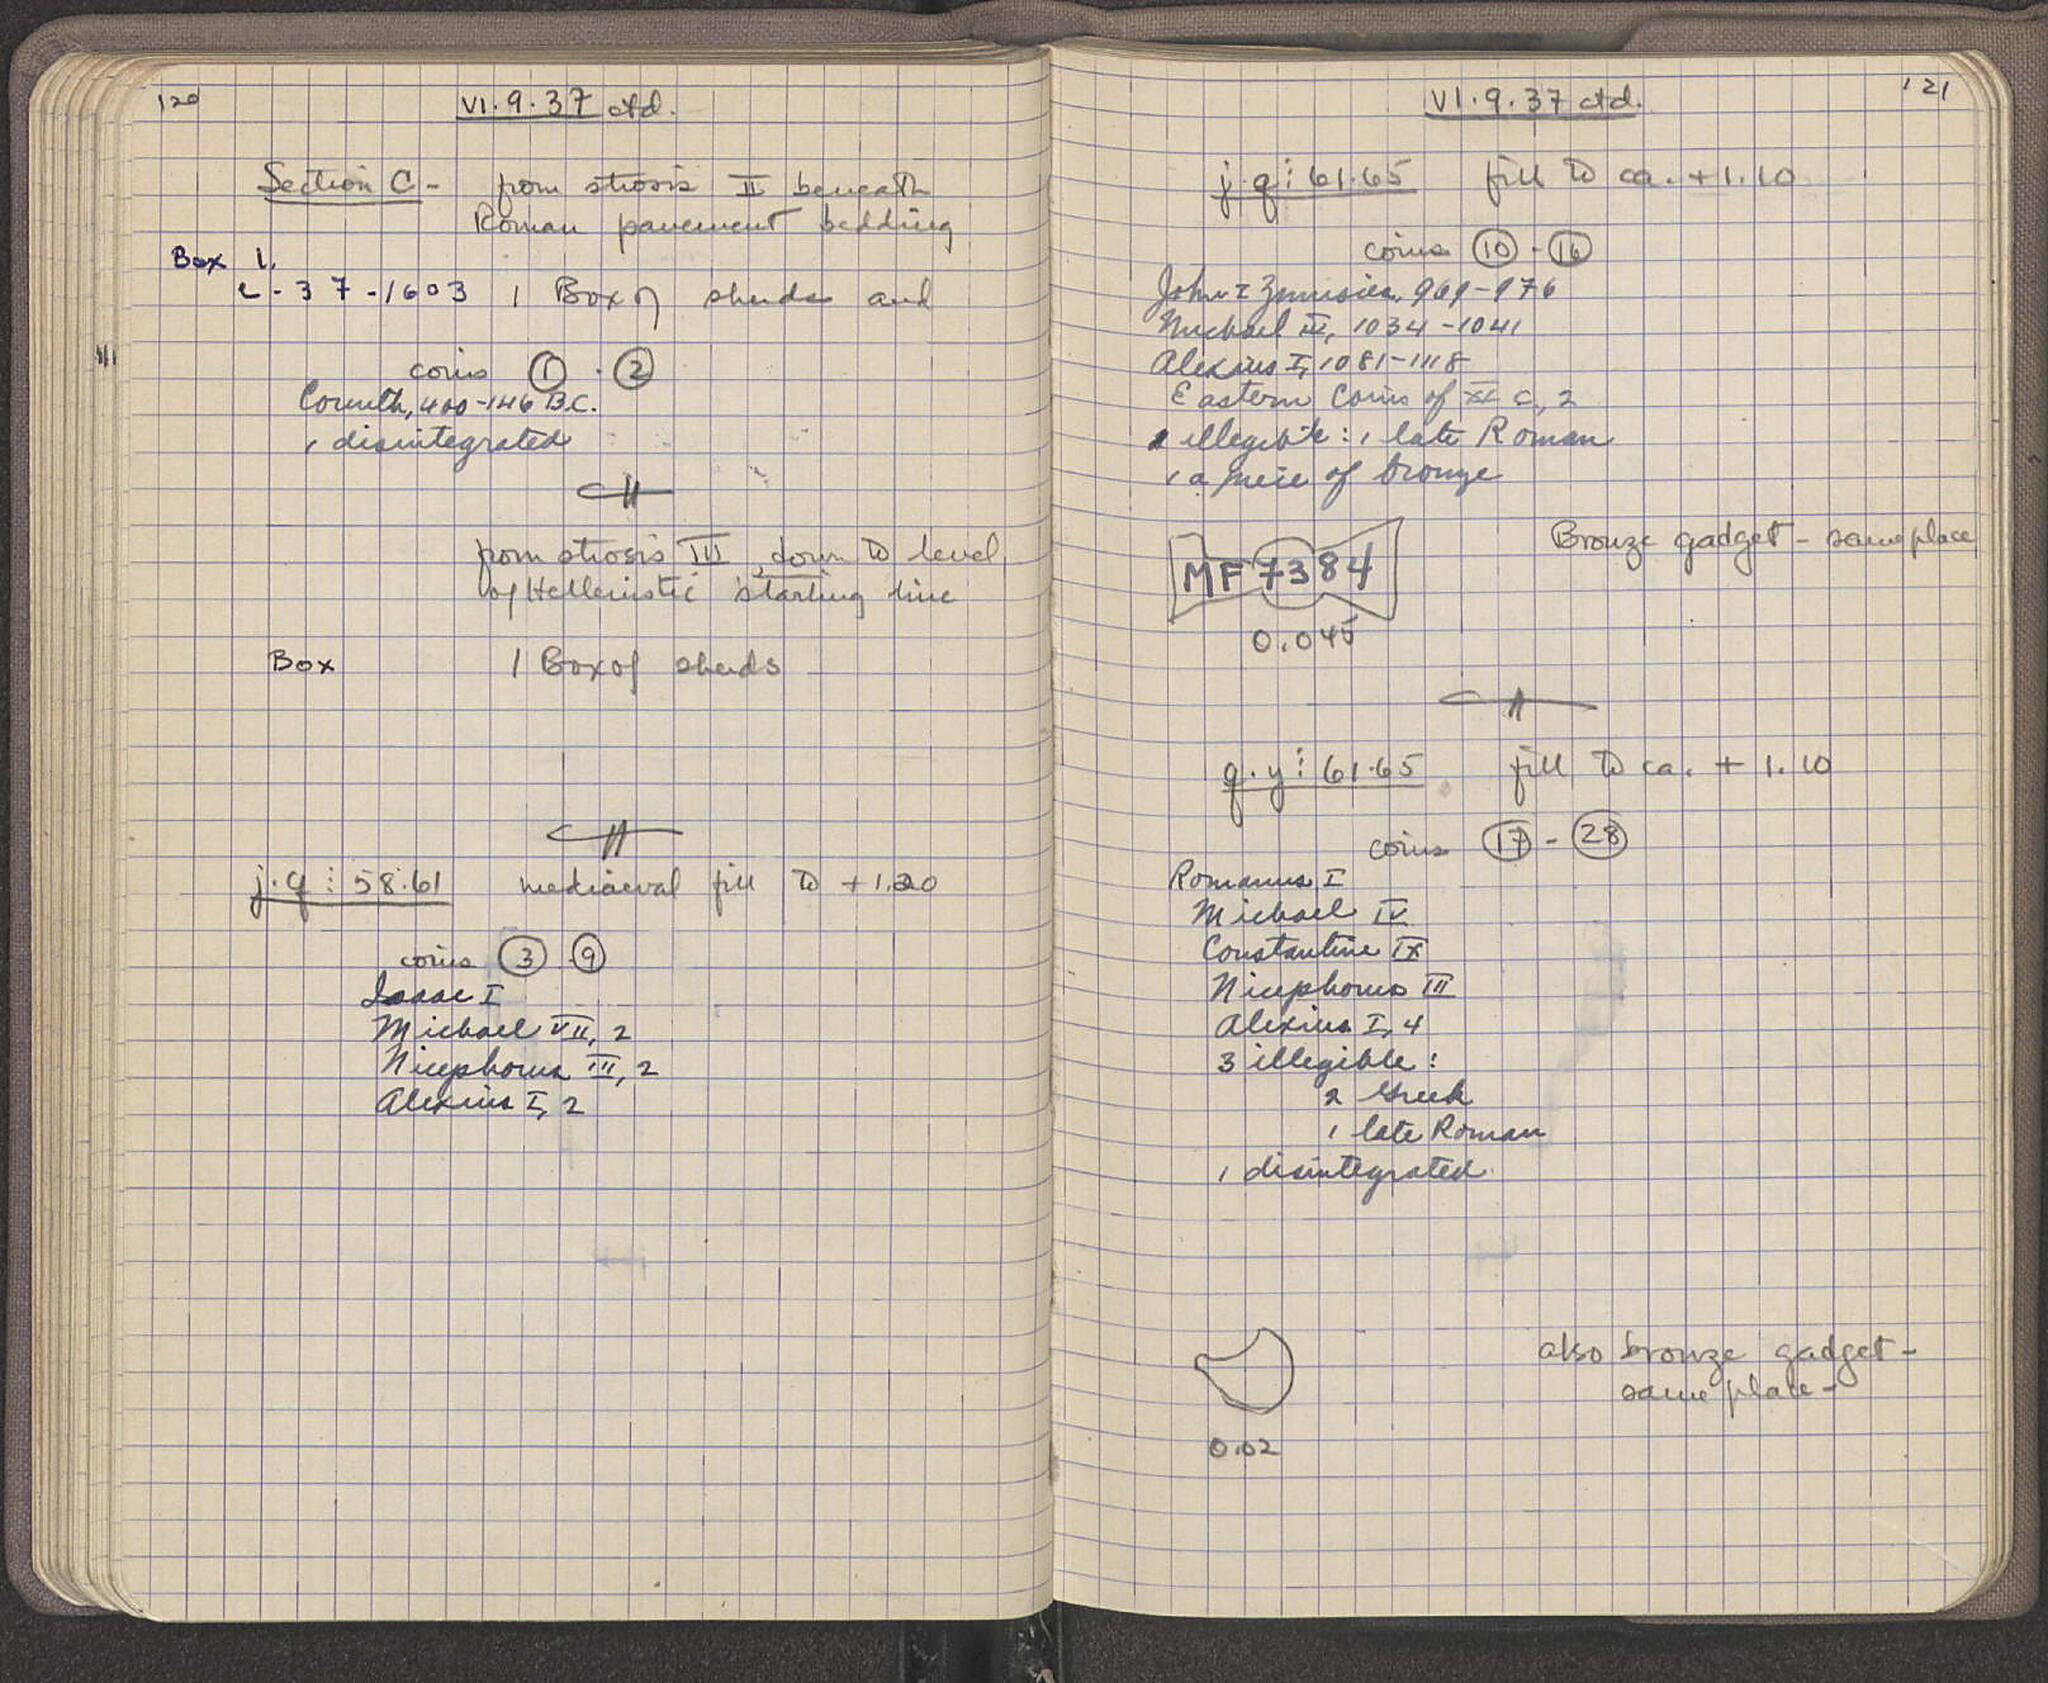 120
VI.9.37 ctd.
Section C - from strosis II beneath
Roman pavement bedding
Box 1.
C-37-1603 1 Box of sherds and
coins 1 - 2
Corinth, 400-146 B.C.
1 disintegrated
from strosis III, down to level
of Hellenistic starting line
Box 1 Box of sherds
j.q ⋮ 58.61 mediaeval fill to +1.20
coins 3 - 9
Isaac I
Michael VII, 2
Nicephorus III, 2
Alexius I, 2
121
VI.9.37 ctd.
j.q ⋮ 61.65 fill to ca. +1.10
coins 10 - 16
John I Zimisces, 969-976
Michael IV, 1034-1041
Alexius I, 1081-1118
Eastern Coins of XI c., 2
2 illegible: 1 late Roman
1 a piece of bronze
MF 7384
Bronze gadget - same place
0.045
q.y ⋮ 61.65 fill to ca. +1.10
coins 17 - 28
Romanus I
Michael IV
Constantine IX
Nicephorus III
Alexius I, 4
3 illegible:
2 Greek
1 late Roman
1 disintegrated
also bronze gadget -
same place -
0.02